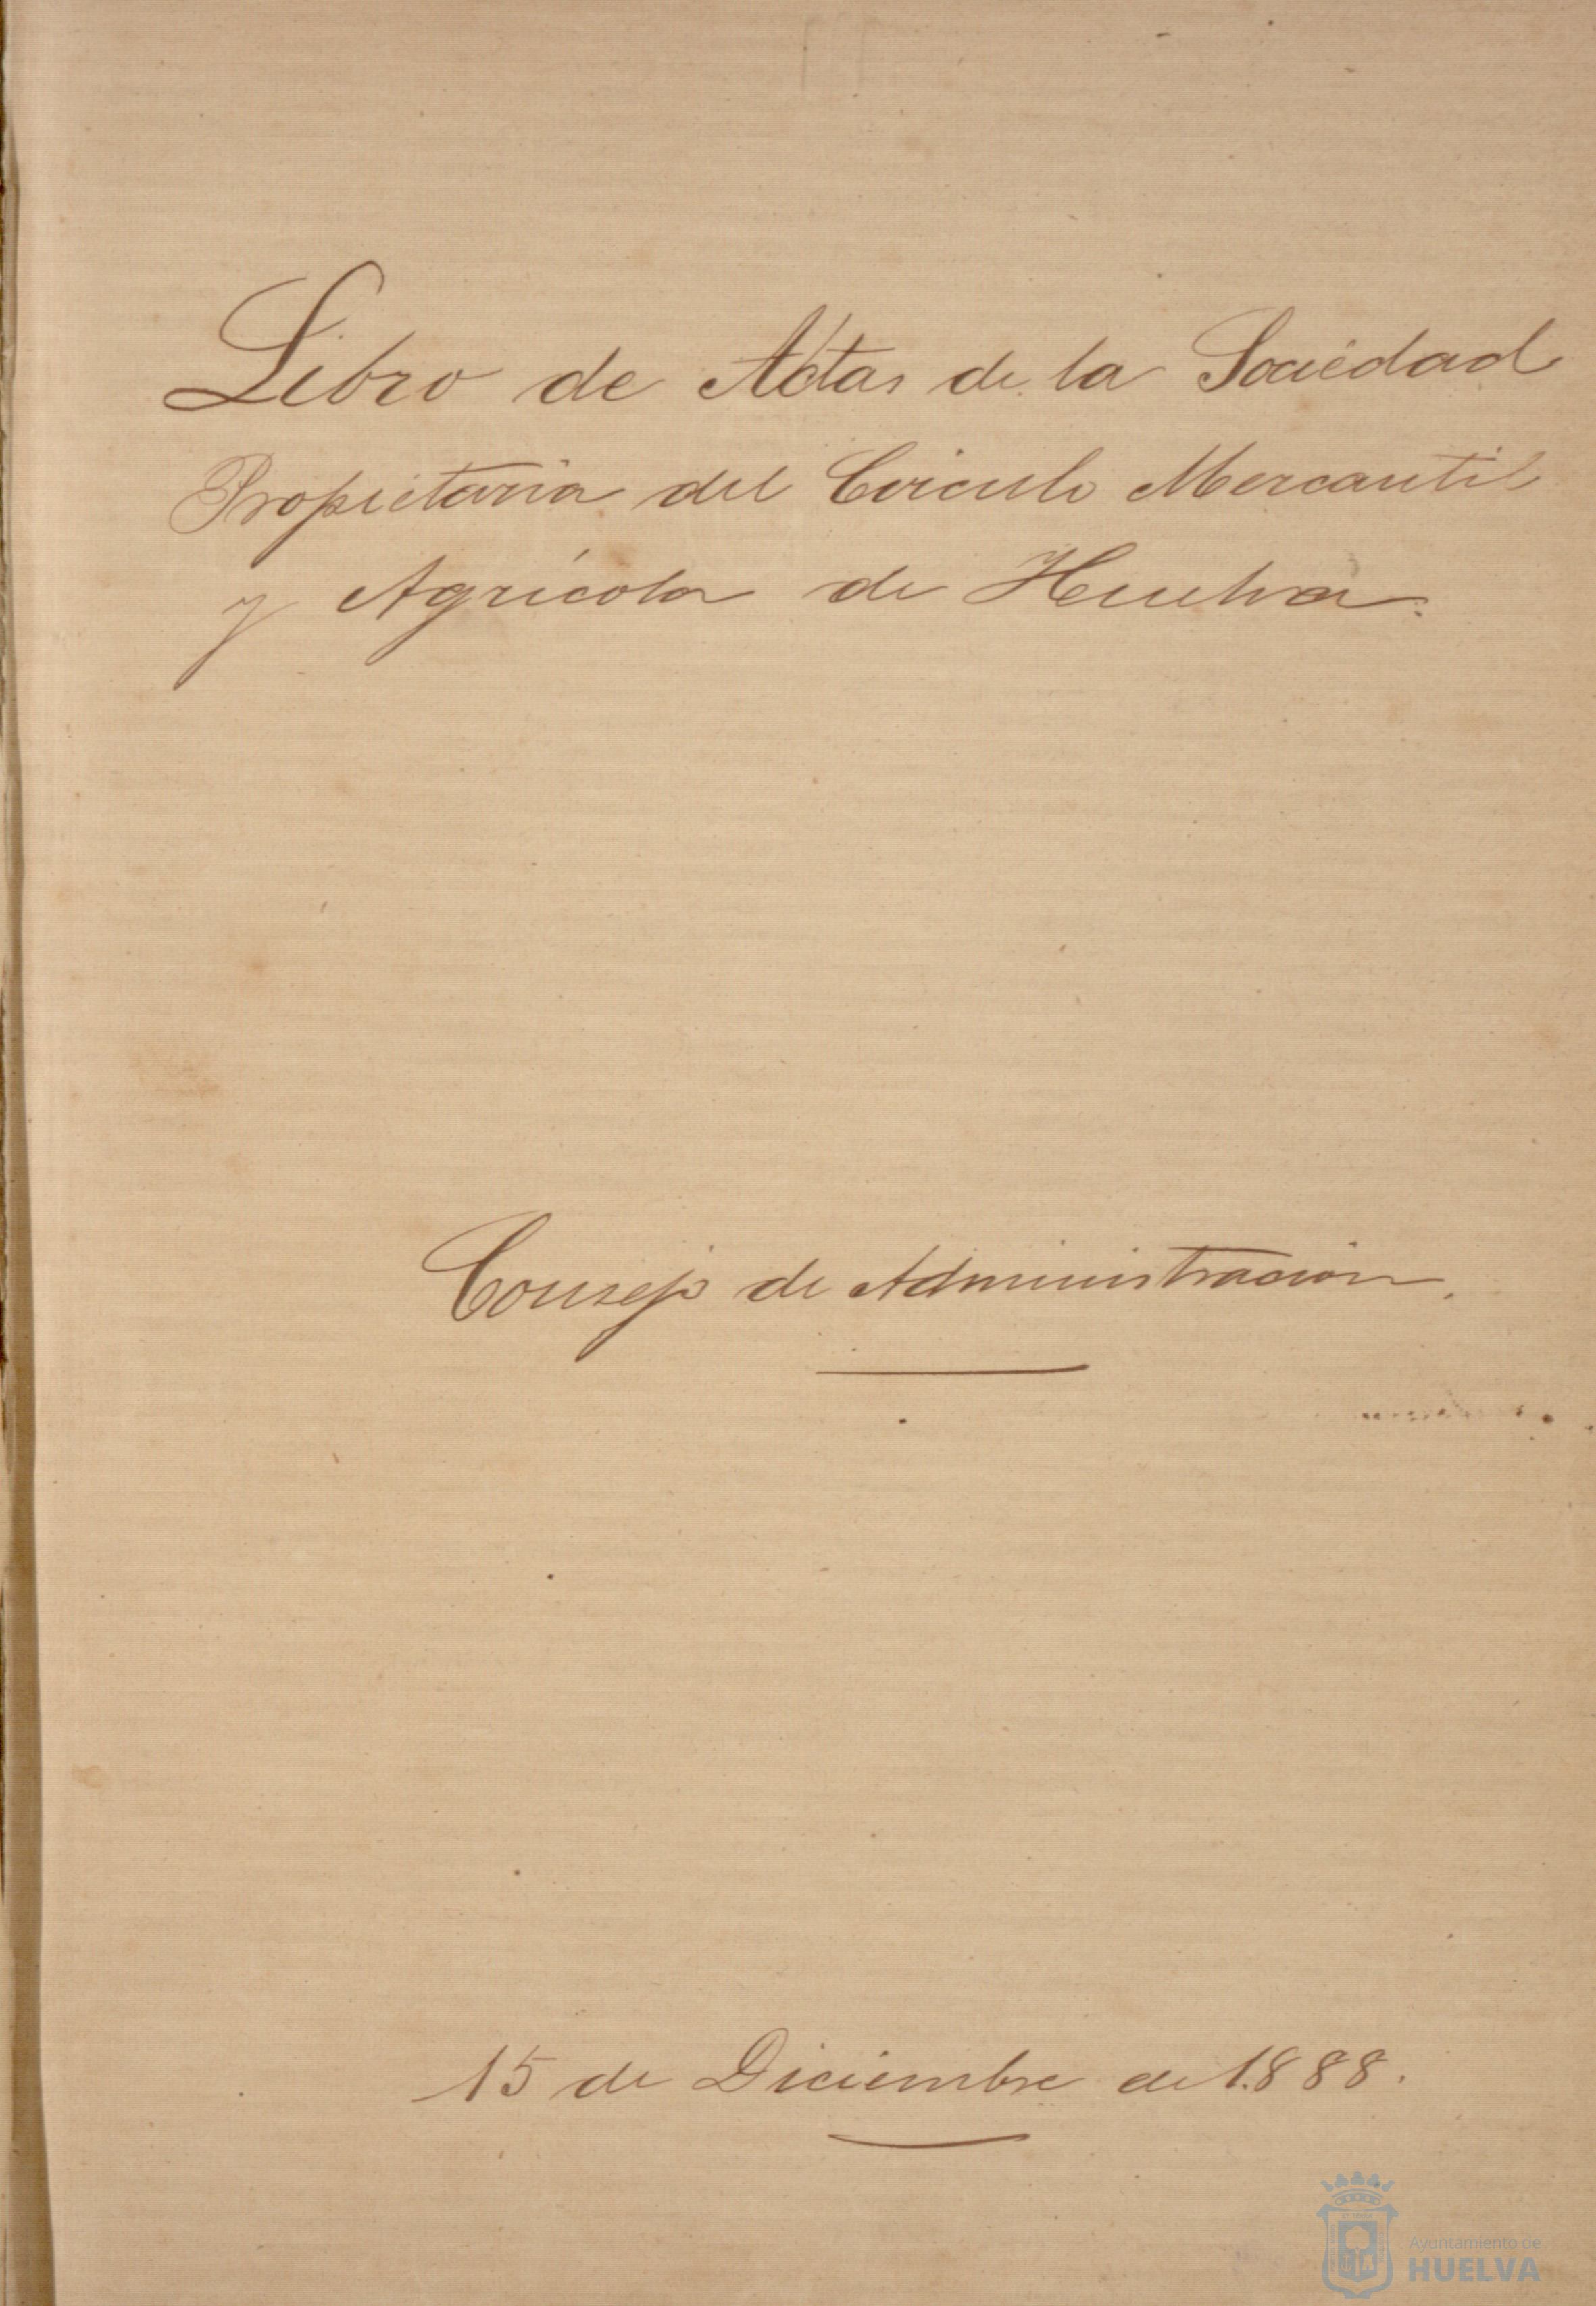 Libro de Actas de la Sociedad
Propietaria del Circulo Mercantil
y Agrícola de Huelva.
Consejo de Administracion.
15 de Diciembre de 1.888.
Ayuntamiento de
HUELVA